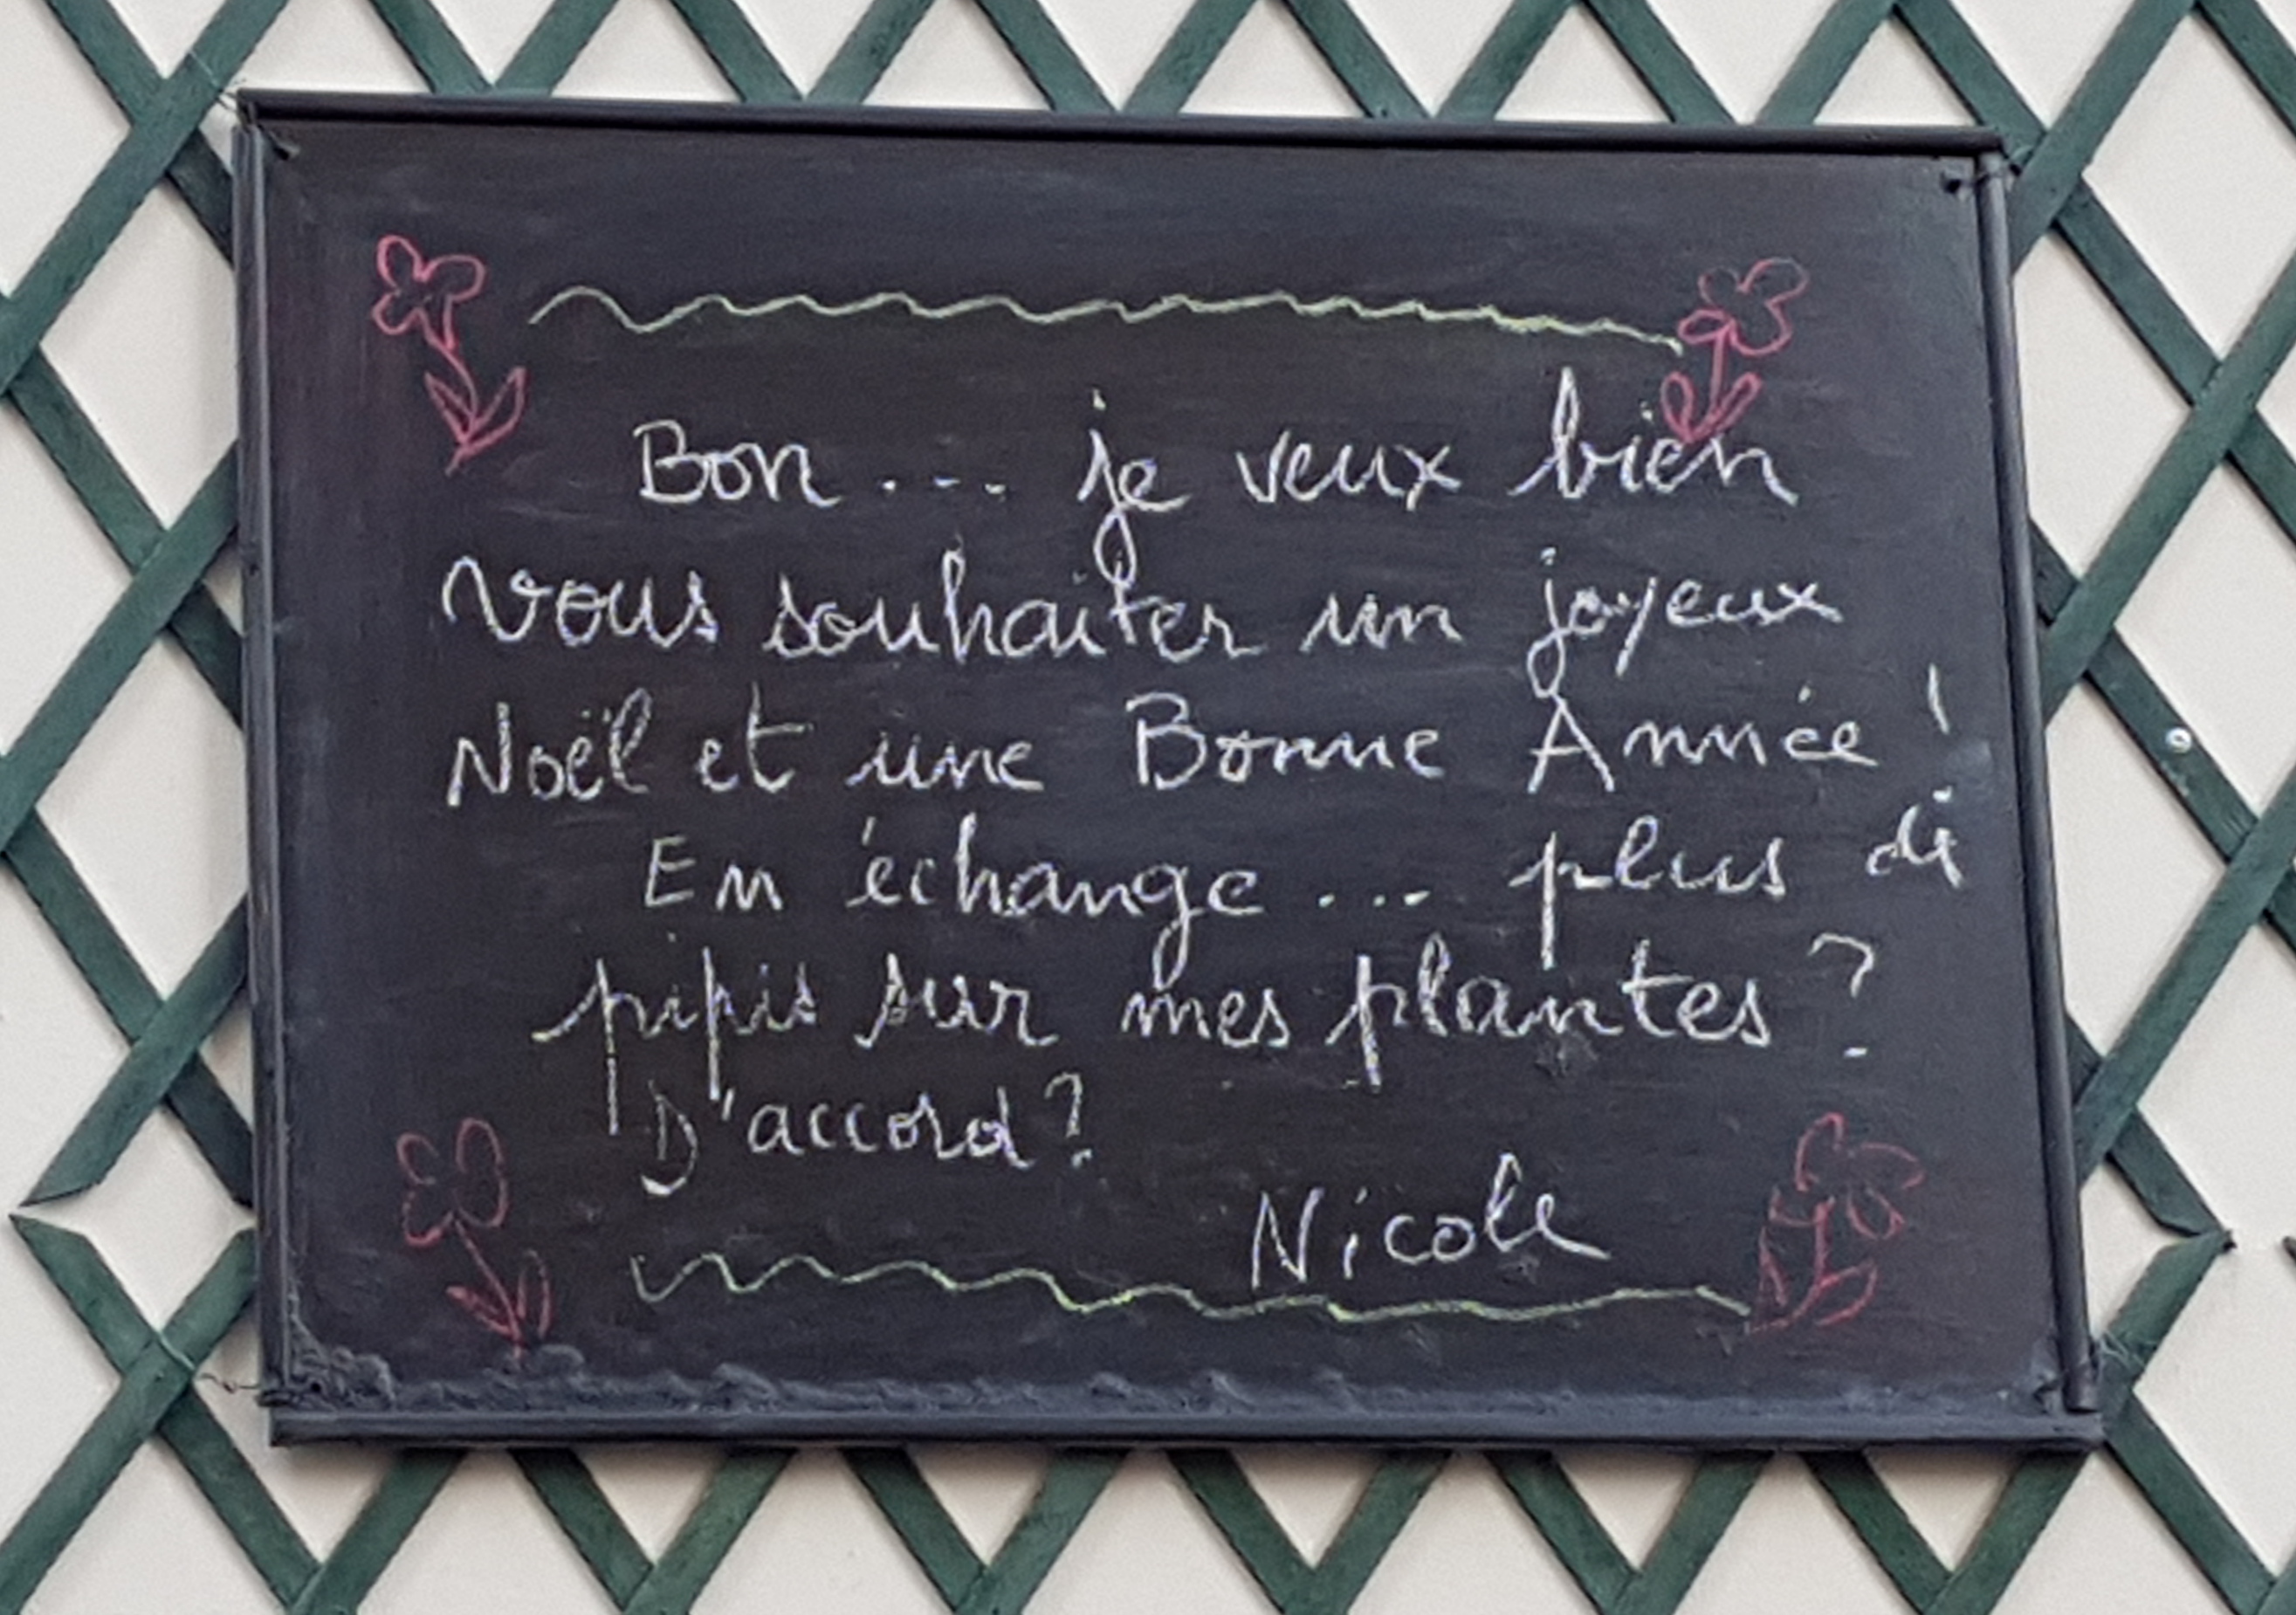 Bon .... je veux bien
vous souhaiter un joyeux
Noël et une Bonne Année !
En échange ... plus de
pipis sur mes plantes ?
D'accord ?
Nicole